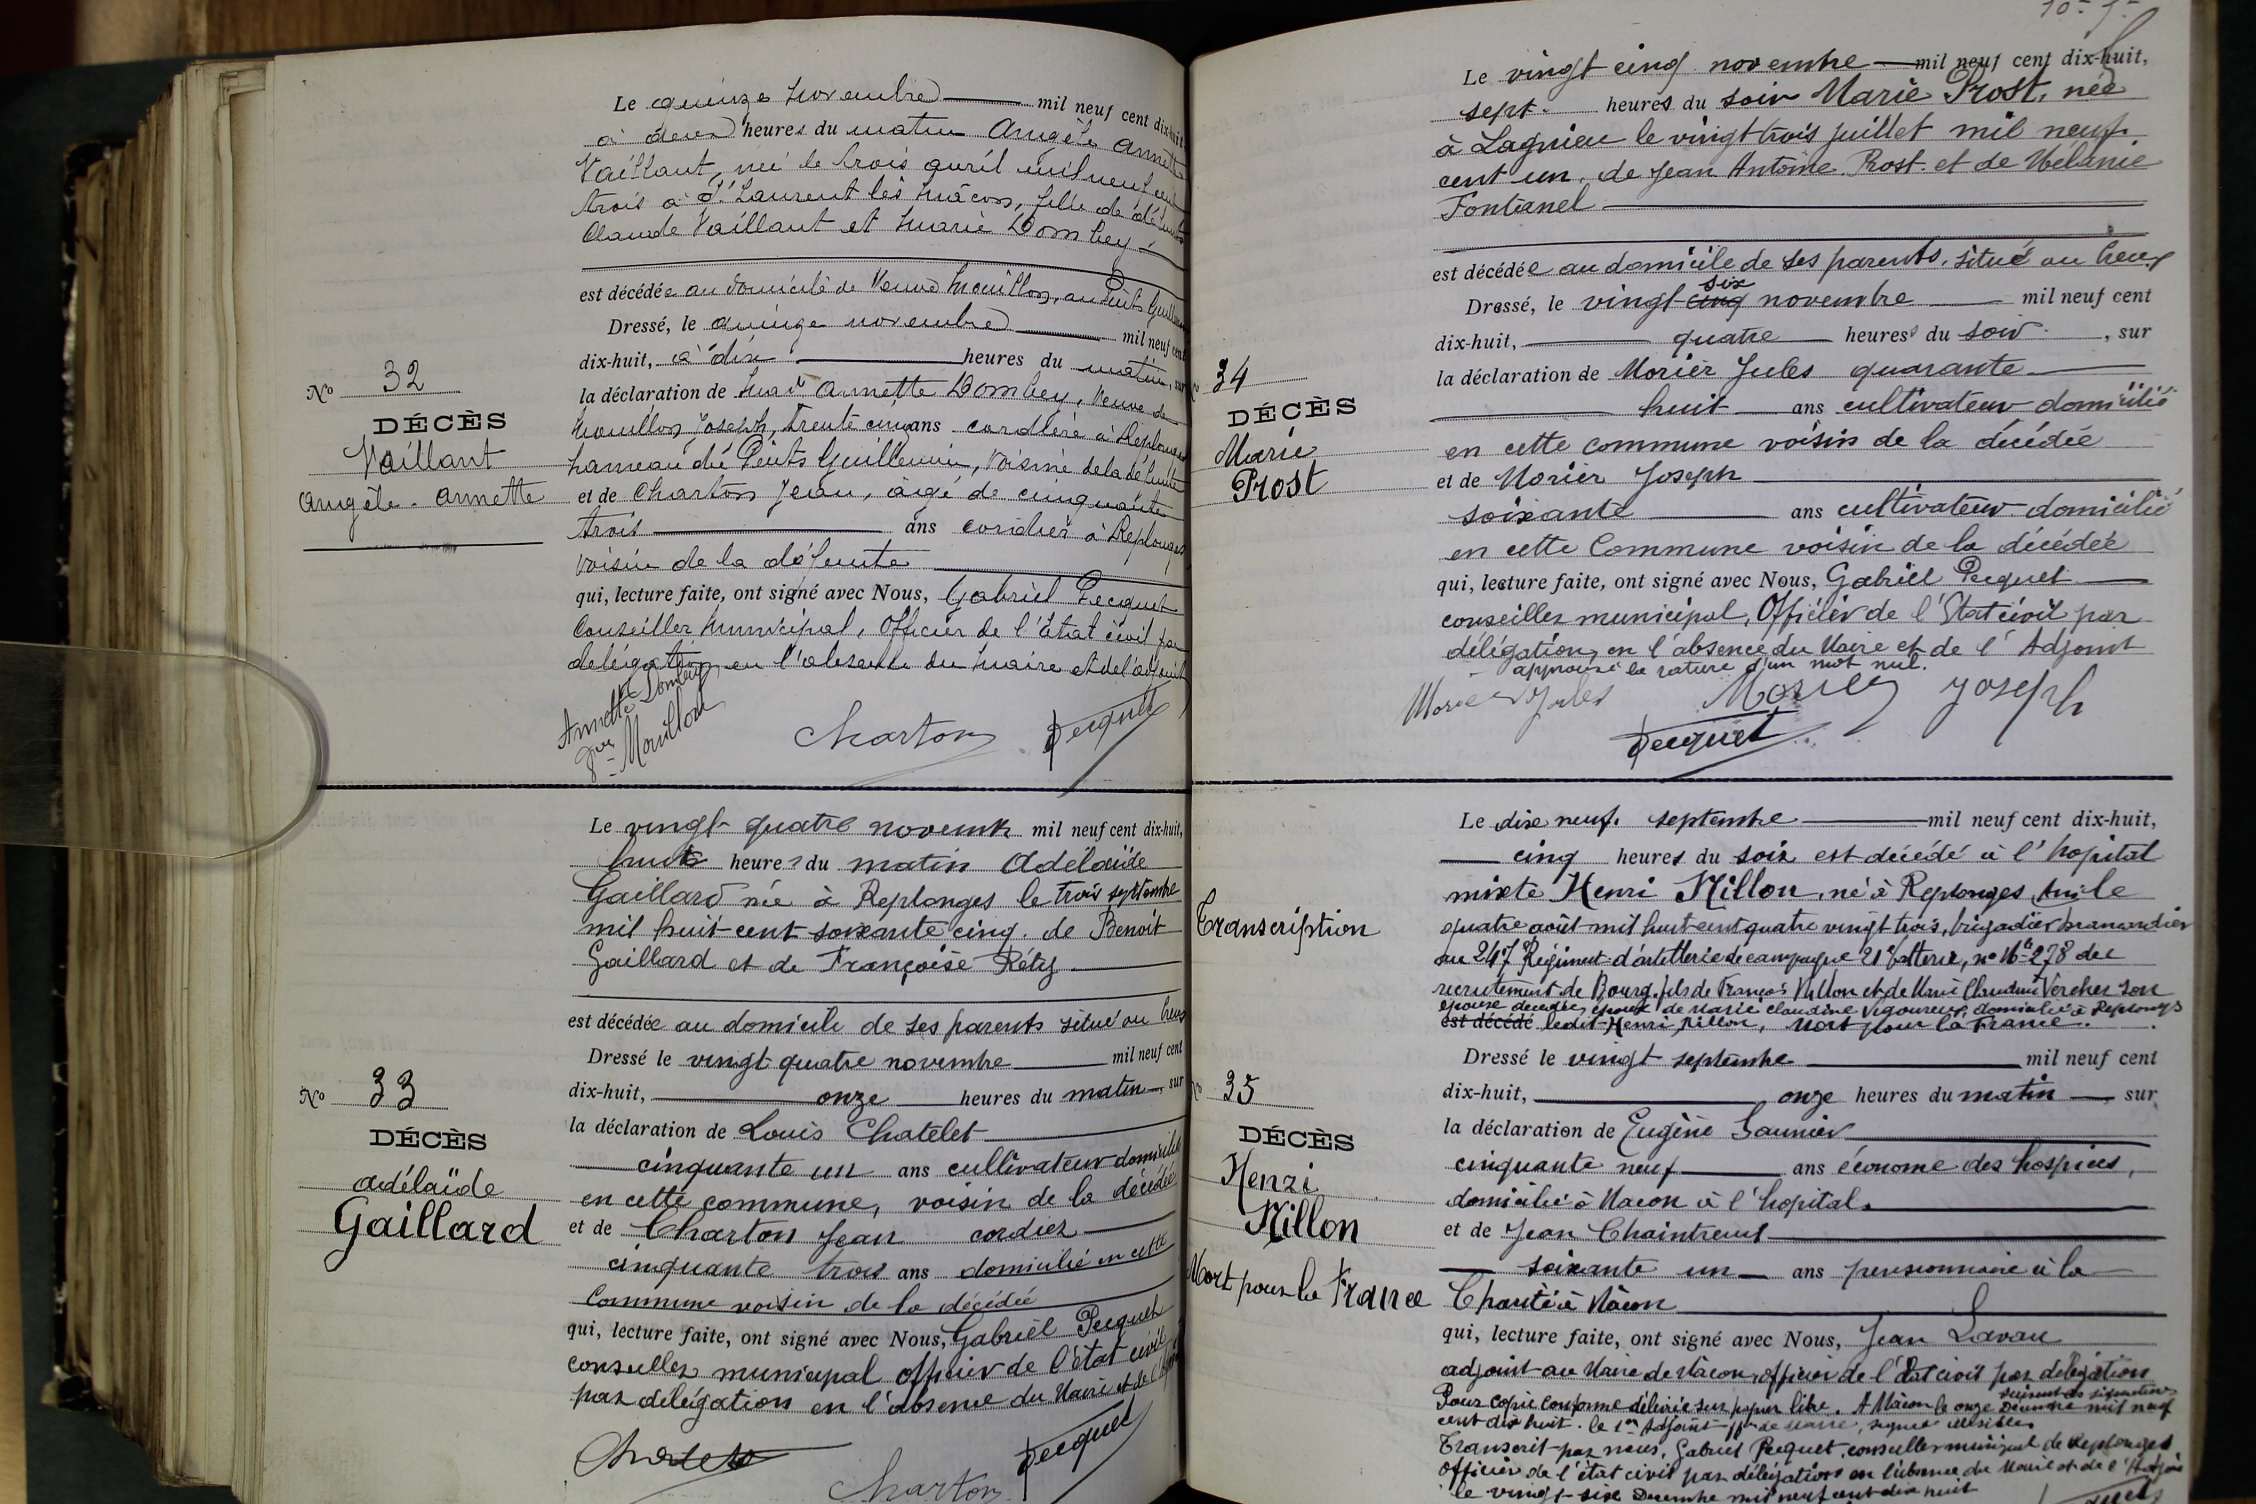 Le quinze novembre mil neuf cent dix-huit
à deux heures du matin Angèle Annette
Vaillant, née le trois avril mil neuf cent
trois à St Laurent lès Mâcon, fille de défunts
Claude Vaillant et Marie Dombey.
est décédée au domicile de Veuve Mouillon, au Puits Guillemin
Dressé, le quinze novembre mil neuf cent
dix-huit, à dix heures du matin, sur
la déclaration de Marie Annette Dombey, Veuve de
Mouillon Joseph, trente cinq ans cordière à Replonges
hameau du Puits Guillemin, voisine de la défunte
et de Charton Jean, âgé de cinquante
trois ans cordier à Replonges
voisin de la défunte
qui, lecture faite, ont signé avec Nous, Gabriel Pecquet
Conseiller Municipal, Officier de l'Etat civil par
delégation, en l'absence du Maire et de l'adjoint
Annette Dombey
Vve Mouillon
Charton Pecquet
No 32
DÉCÈS
Vaillant
Angèle. Annette
Le vingt quatre novembre mil neuf cent dix-huit,
huit heures du matin Adélaïde
Gaillard née à Replonges le trois septembre
mil huit cent soixante cinq. de Benoit
Gaillard et de Françoise Réty
est décédée au domicile de ses parents situé au lieu
Dressé le vingt quatre novembre mil neuf cent
dix-huit, onze heures du matin, sur
la déclaration de Louis Chatelet
cinquante un ans cultivateur domicilié
en cette commune, voisin de la décédée
et de Charton Jean cordier
cinquante trois ans domicilié en cette
Commune voisin de la décédée
qui, lecture faite, ont signé avec Nous, Gabriel Pecquet
conseiller municipal officier de l'état civil
par délégation en l'absence du Maire et de l'
Chatelet
Charton Pecquet
No 33
DÉCÈS
Adélaïde
Gaillard
Le vingt cinq novembre mil neuf cent dix-huit,
sept. heures du soir Marie Prost, née
à Lagnieu le vingt trois juillet mil neuf
cent un, de Jean Antoine Prost et de Mélanie
Fontanel
est décédée au domicile de ses parents, situé au lieu
Dressé, le vingt cinq six novembre mil neuf cent
dix-huit, quatre heures du soir, sur
la déclaration de Morier Jules quarante
huit ans cultivateur domicilié
en cette commune voisin de la décédée
et de Morier Joseph
soixante ans cultivateur domicilié
en cette Commune voisin de la décédée
qui, lecture faite, ont signé avec Nous, Gabriel Pecquet
conseiller municipal, Officier de l'Etat civil par
délégation en l'absence du Maire et de l'Adjoint
approuvé la rature d'un mot nul.
Morier Jules Morier Joseph
Pecquet
34
DÉCÈS
Marie
Prost
Le dix neuf septembre mil neuf cent dix-huit,
cinq heures du soir est décédé à l'hopital
mixte Henri Millon, né à Replonges, Ain le
quatre août mil huit cent quatre vingt trois, brigadier brancardier
au 247 Régiment d'artillerie de campagne 21e batterie, no Mle 278 de
recrutement de Bourg. fils de François Millon et de Marie Claudine Vercher son
épouse décédée, époux de Marie Claudine Vigoureux, domicilié à Replonges
est décédé ledit Henri Millon, Mort pour la France.
Dressé le vingt septembre mil neuf cent
dix-huit, onze heures du matin, sur
la déclaration de Eugène Saunier
cinquante neuf ans économe des hospices,
domicilié à Macon à l'hopital.
et de Jean Chaintreuil
soixante un ans pensionnaire à la
Charité à Mâcon
qui, lecture faite, ont signé avec Nous, Jean Lavau
adjoint au Maire de Macon, officier de l'état civil par délégation
suivent les signatures
Pour copie conforme délivrée sur papier libre. A Mâcon le onze Décembre mil neuf
cent dix huit. le 1er Adjoint ffon de Maire, signé illisible
Transcrit par nous, Gabriel Pecquet, conseiller municipal de Replonges
officier de l'état civil par délégation en l'absence du Maire et de l'Adjoint
le vingt-six Décembre mil neuf cent dix huit
Transcription
35
DÉCÈS
Henri
Millon
Mort pour la France